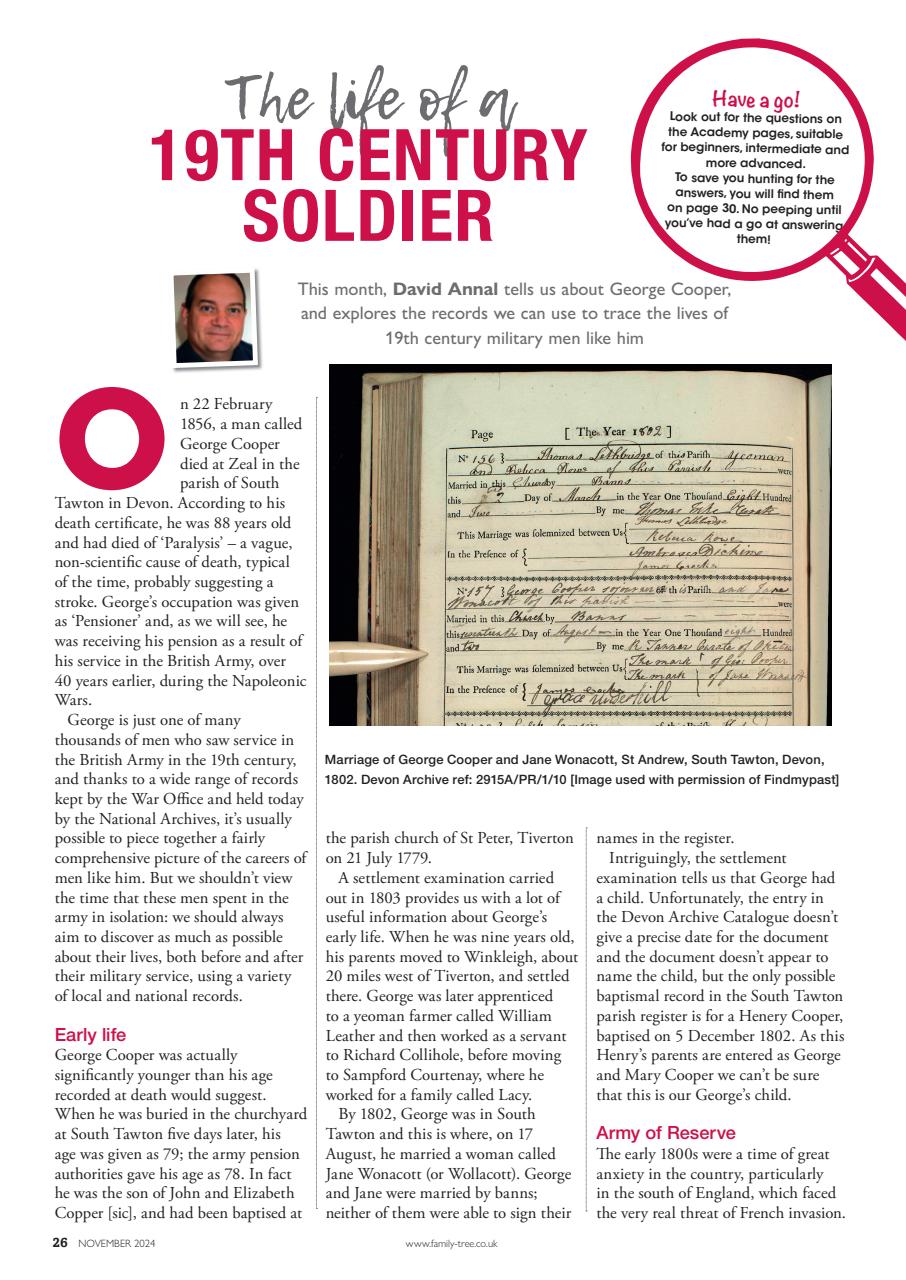 The life of a
19TH CENTURY
SOLDIER
Have a go!
Look out for the questions on
the Academy pages, suitable
for beginners, intermediate and
more advanced.
To save you hunting for the
answers, you will find them
on page 30. No peeping until
you've had a go at answering
them!
This month, David Annal tells us about George Cooper,
and explores the records we can use to trace the lives of
19th century military men like him
On 22 February
1856, a man called
George Cooper
died at Zeal in the
parish of South
Tawton in Devon. According to his
death certificate, he was 88 years old
and had died of 'Paralysis' – a vague,
non-scientific cause of death, typical
of the time, probably suggesting a
stroke. George's occupation was given
as 'Pensioner' and, as we will see, he
was receiving his pension as a result of
his service in the British Army, over
40 years earlier, during the Napoleonic
Wars.
George is just one of many
thousands of men who saw service in
the British Army in the 19th century,
and thanks to a wide range of records
kept by the War Office and held today
by the National Archives, it's usually
possible to piece together a fairly
comprehensive picture of the careers of
men like him. But we shouldn't view
the time that these men spent in the
army in isolation: we should always
aim to discover as much as possible
about their lives, both before and after
their military service, using a variety
of local and national records.
Early life
George Cooper was actually
significantly younger than his age
recorded at death would suggest.
When he was buried in the churchyard
at South Tawton five days later, his
age was given as 79; the army pension
authorities gave his age as 78. In fact
he was the son of John and Elizabeth
Copper [sic], and had been baptised at
Page [ The Year 1802 ]
Nº 156 } Thomas Lethbridge of this Parish yeoman
and Rebecca Rowe of this Parrish were
Married in this Church by Banns
this Day of March in the Year One Thousand Eight Hundred
and Two By me Thomas Curate
This Marriage was solemnized between Us { Thomas Lethbridge
Rebecca Rowe
In the Presence of { Ambrose Dickins
James Cracker
Nº 157 } George Cooper sojourner of this Parish and Jane
Wonacott of this parish were
Married in this Church by Banns
this seventeenth Day of August in the Year One Thousand eight Hundred
and two By me R Tanner Curate of
This Marriage was solemnized between Us { The mark of Geo Cooper
The mark of Jane Wonacott
In the Presence of { James Cracker
Grace Underhill
Marriage of George Cooper and Jane Wonacott, St Andrew, South Tawton, Devon,
1802. Devon Archive ref: 2915A/PR/1/10 [Image used with permission of Findmypast]
the parish church of St Peter, Tiverton
on 21 July 1779.
A settlement examination carried
out in 1803 provides us with a lot of
useful information about George's
early life. When he was nine years old,
his parents moved to Winkleigh, about
20 miles west of Tiverton, and settled
there. George was later apprenticed
to a yeoman farmer called William
Leather and then worked as a servant
to Richard Collihole, before moving
to Sampford Courtenay, where he
worked for a family called Lacy.
By 1802, George was in South
Tawton and this is where, on 17
August, he married a woman called
Jane Wonacott (or Wollacott). George
and Jane were married by banns;
neither of them were able to sign their
names in the register.
Intriguingly, the settlement
examination tells us that George had
a child. Unfortunately, the entry in
the Devon Archive Catalogue doesn't
give a precise date for the document
and the document doesn't appear to
name the child, but the only possible
baptismal record in the South Tawton
parish register is for a Henery Cooper,
baptised on 5 December 1802. As this
Henry's parents are entered as George
and Mary Cooper we can't be sure
that this is our George's child.
Army of Reserve
The early 1800s were a time of great
anxiety in the country, particularly
in the south of England, which faced
the very real threat of French invasion.
26 NOVEMBER 2024
www.family-tree.co.uk